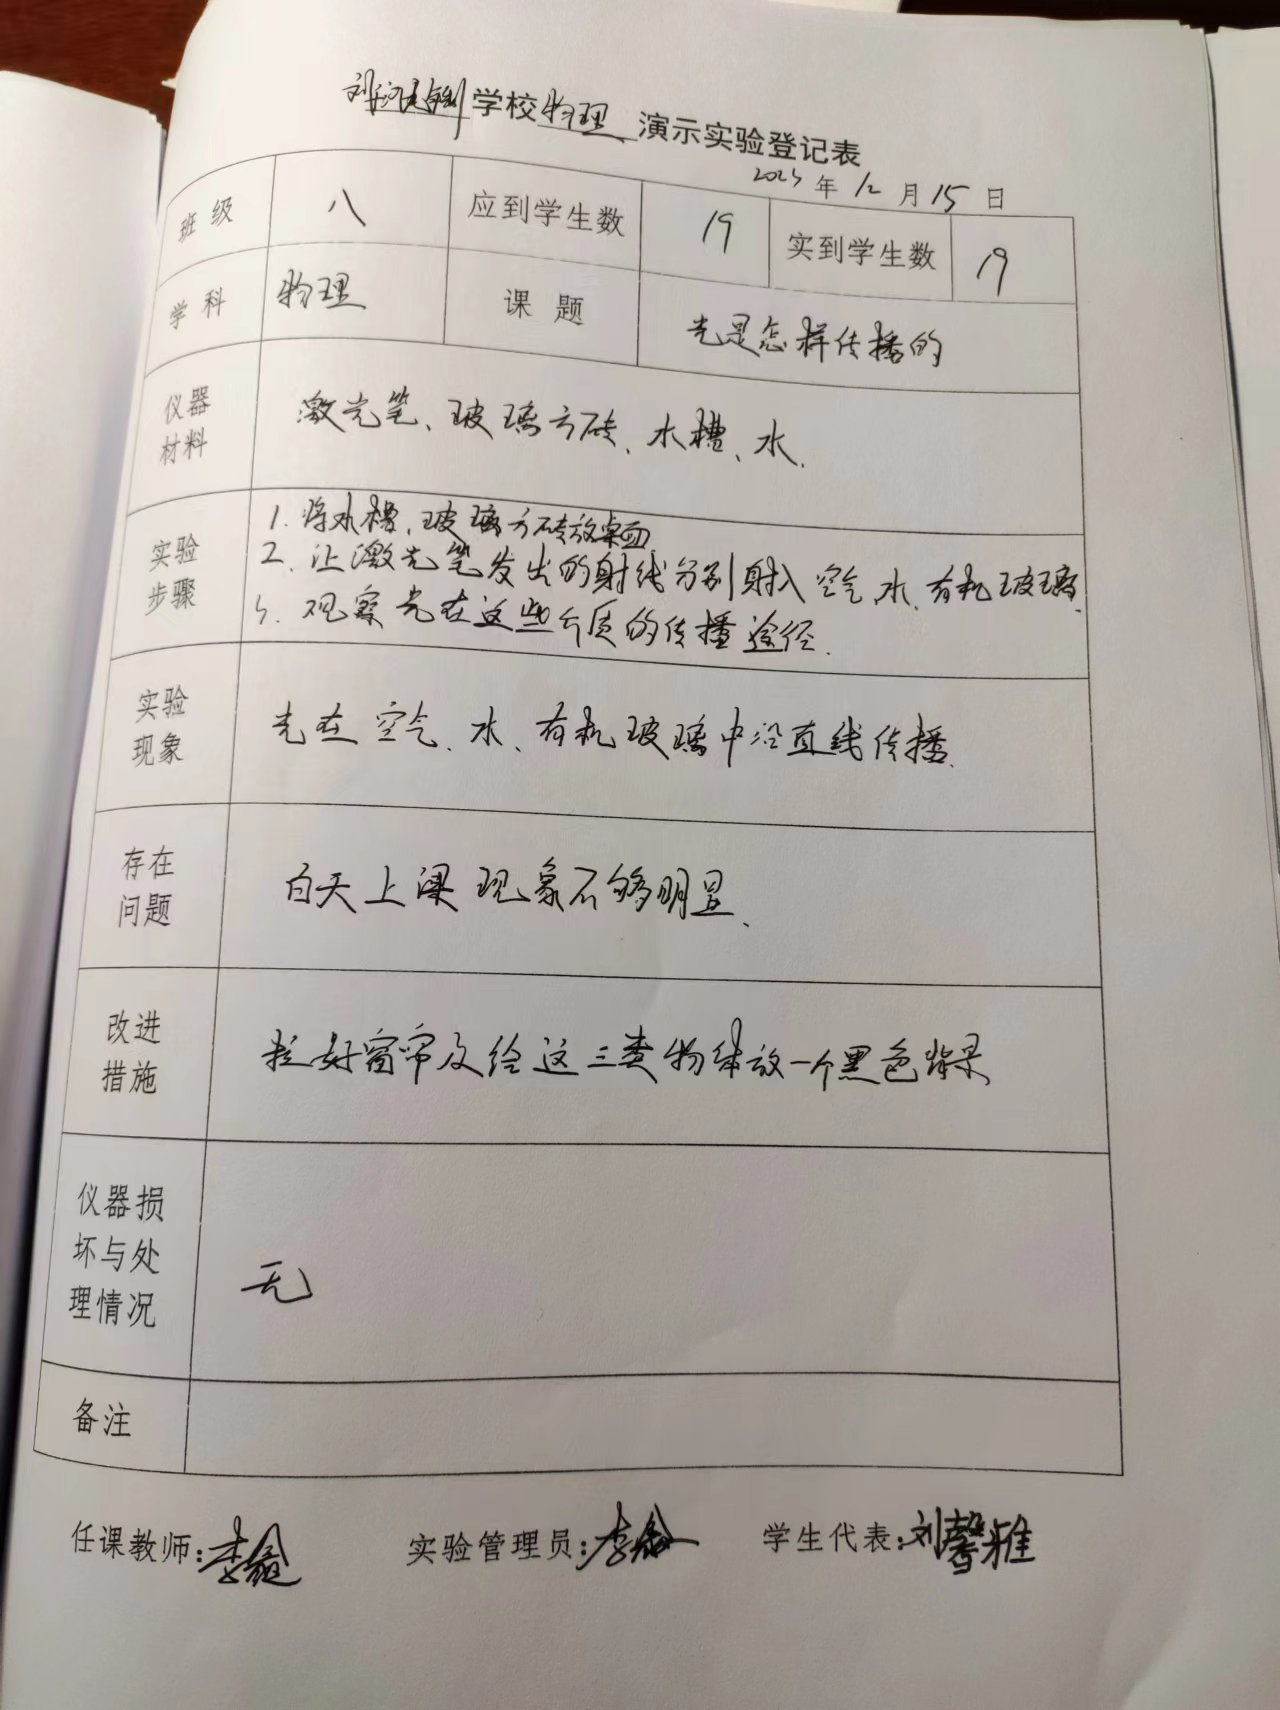 学校物理 演示实验登记表
年12月15日
班级 八 应到学生数 19 实到学生数 19
学科 物理 课题 光是怎样传播的
仪器
材料
激光笔、玻璃方砖、水槽、水.
实验
步骤
1. 将水槽、玻璃方砖放桌面
2. 让激光笔发出的射线分别射入空气、水、有机玻璃.
3. 观察光在这些介质的传播途径.
实验
现象
光在空气、水、有机玻璃中沿直线传播.
存在
问题
白天上课现象不够明显、
改进
措施
拉好窗帘及给这三类物体放一个黑色背景
仪器损
坏与处
理情况
无
备注
任课教师: 李 实验管理员: 李 学生代表: 刘馨雅